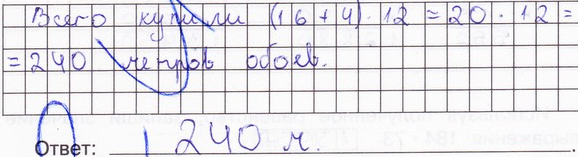 Всего купили (16 + 4) · 12 = 20 · 12 =
= 240 метров обоев.
Ответ: 240 м.